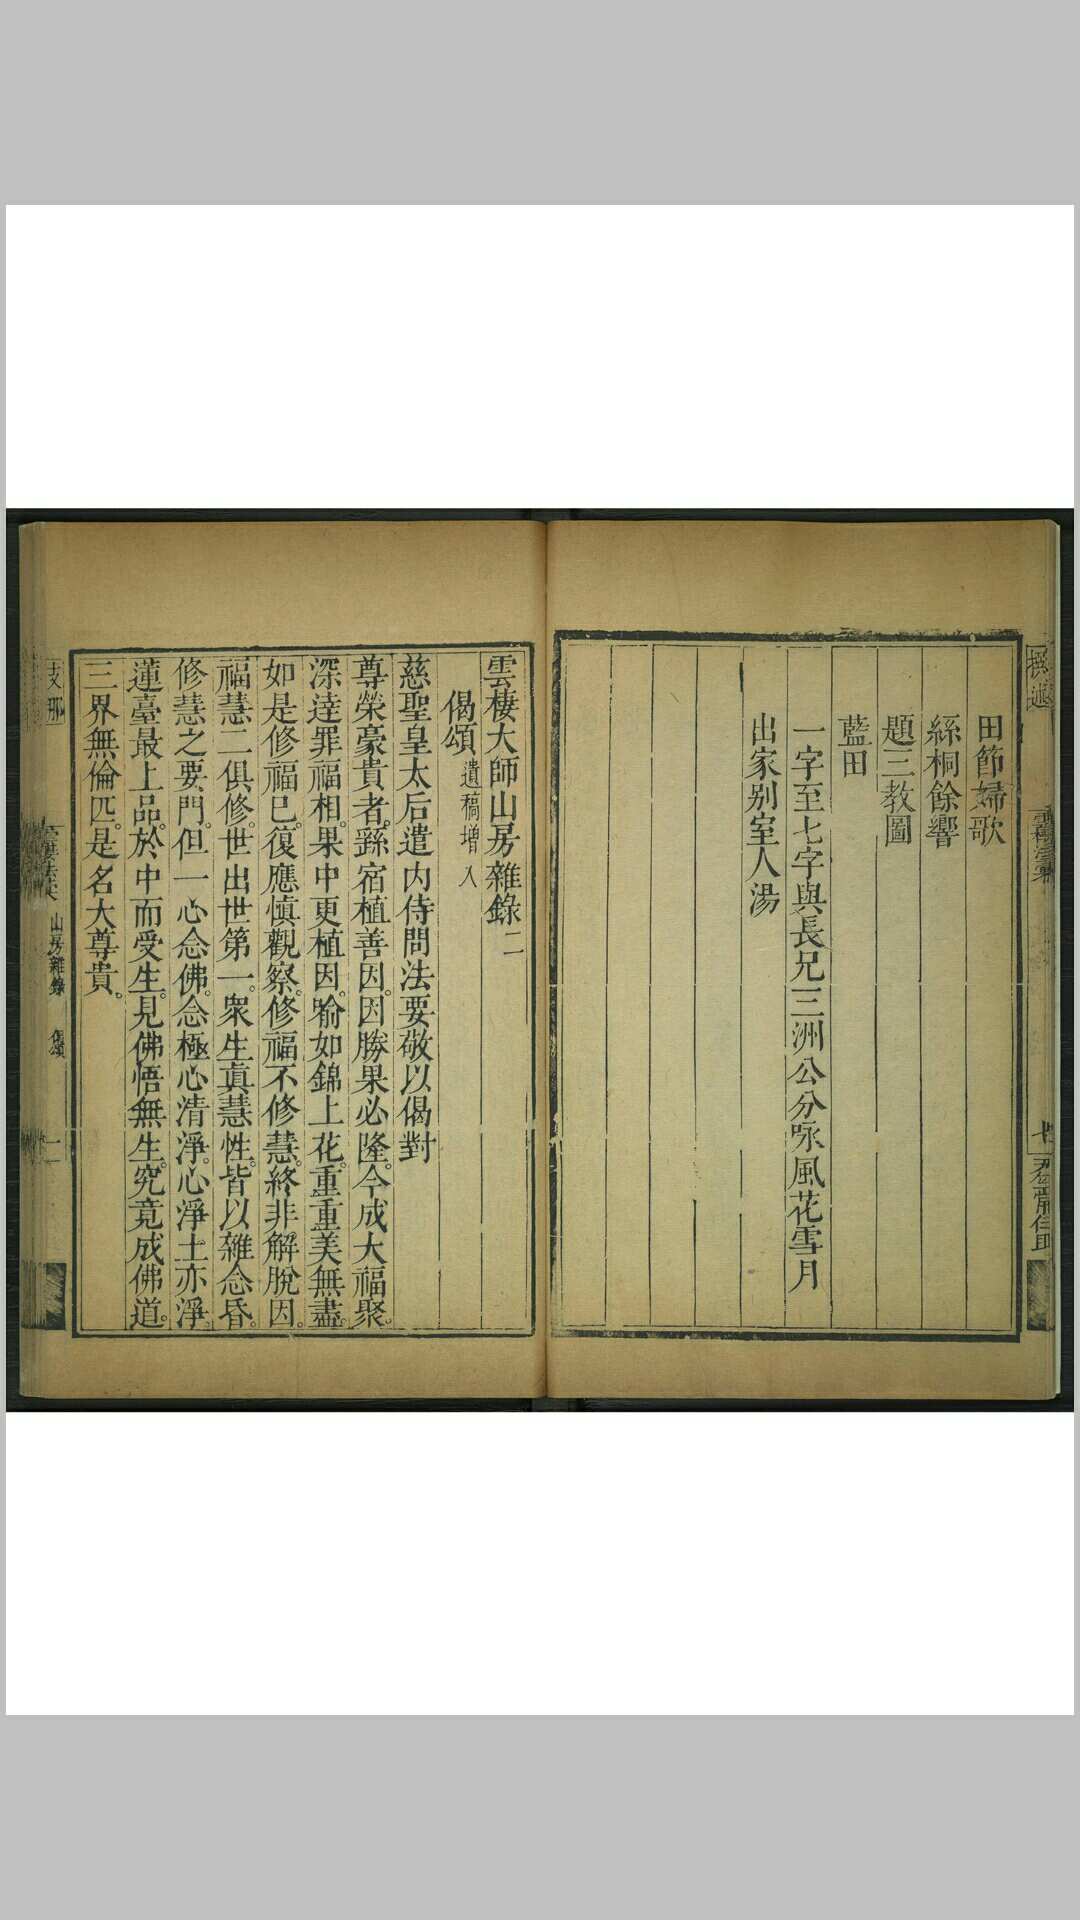 撰述
雲棲法彙
田節婦歌
絲桐餘響
題三教圖
藍田
一字至七字與長兄三洲公分咏風花雪月
出家别室人湯
雲棲大師山房雜錄二
偈頌遺稿增入
慈聖皇太后遣内侍問法要敬以偈對
尊榮豪貴者。繇宿植善因。因勝果必隆。今成大福聚。
深達罪福相。果中更植因。喻如錦上花。重重美無盡。
如是修福已。復應慎觀察。修福不修慧。終非解脫因。
福慧二俱修。世出世第一。衆生真慧性。皆以雜念昏。
修慧之要門。但一心念佛。念極心清淨。心淨土亦淨。
蓮臺最上品。於中而受生。見佛悟無生。究竟成佛道。
三界無倫匹。是名大尊貴。
支那
山房雜錄
偈頌
一